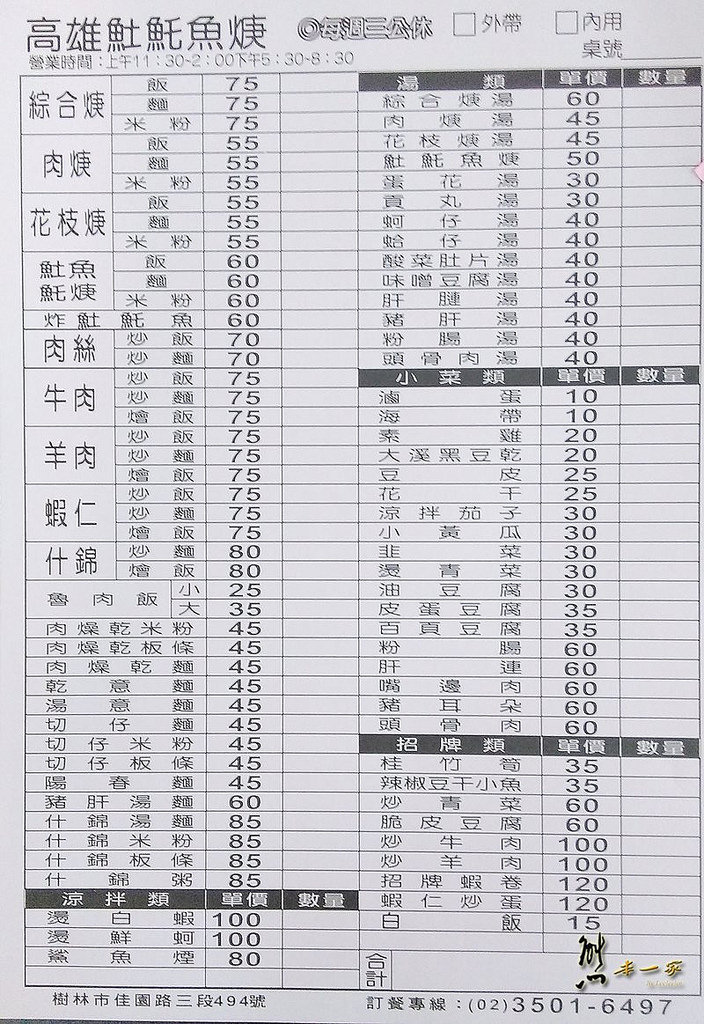 高雄䰾魠魚焿 ◎每週三公休 □外帶 □內用
營業時間：上午11：30-2：00下午5：30-8：30 桌號
綜合焿 飯 75
麵 75
米粉 75
肉焿 飯 55
麵 55
米粉 55
花枝焿 飯 55
麵 55
米粉 55
魠魚焿 飯 60
麵 60
米粉 60
炸 魠魚 60
肉絲 炒飯 70
炒麵 70
牛肉 炒飯 75
炒麵 75
燴飯 75
羊肉 炒飯 75
炒麵 75
燴飯 75
蝦仁 炒飯 75
炒麵 75
燴飯 75
什錦 炒麵 80
燴飯 80
魯肉飯 小 25
大 35
肉燥乾米粉 45
肉燥乾板條 45
肉燥乾麵 45
乾意麵 45
湯意麵 45
切仔麵 45
切仔米粉 45
切仔板條 45
陽春麵 45
豬肝湯麵 60
什錦湯麵 85
什錦米粉 85
什錦板條 85
什錦粥 85
涼拌類 單價 數量
燙白蝦 100
燙鮮蚵 100
鯊魚煙 80
湯類 單價 數量
綜合焿湯 60
肉焿湯 45
花枝焿湯 45
魠魚焿 50
蛋花湯 30
貢丸湯 30
蚵仔湯 40
蛤仔湯 40
酸菜肚片湯 40
味噌豆腐湯 40
肝腱湯 40
豬肝湯 40
粉腸湯 40
頭骨肉湯 40
小菜類 單價 數量
滷蛋 10
海帶 10
素雞 20
大溪黑豆乾 20
豆皮 25
花干 25
涼拌茄子 30
小黃瓜 30
韭菜 30
燙青菜 30
油豆腐 30
皮蛋豆腐 35
百頁豆腐 35
粉腸 60
肝連 60
嘴邊肉 60
豬耳朵 60
頭骨肉 60
招牌類 單價 數量
桂竹筍 35
辣椒豆干小魚 35
炒青菜 60
脆皮豆腐 60
炒牛肉 100
炒羊肉 100
招牌蝦卷 120
蝦仁炒蛋 120
白飯 15
合計
樹林市佳園路三段494號 訂餐專線：(02)3501-6497